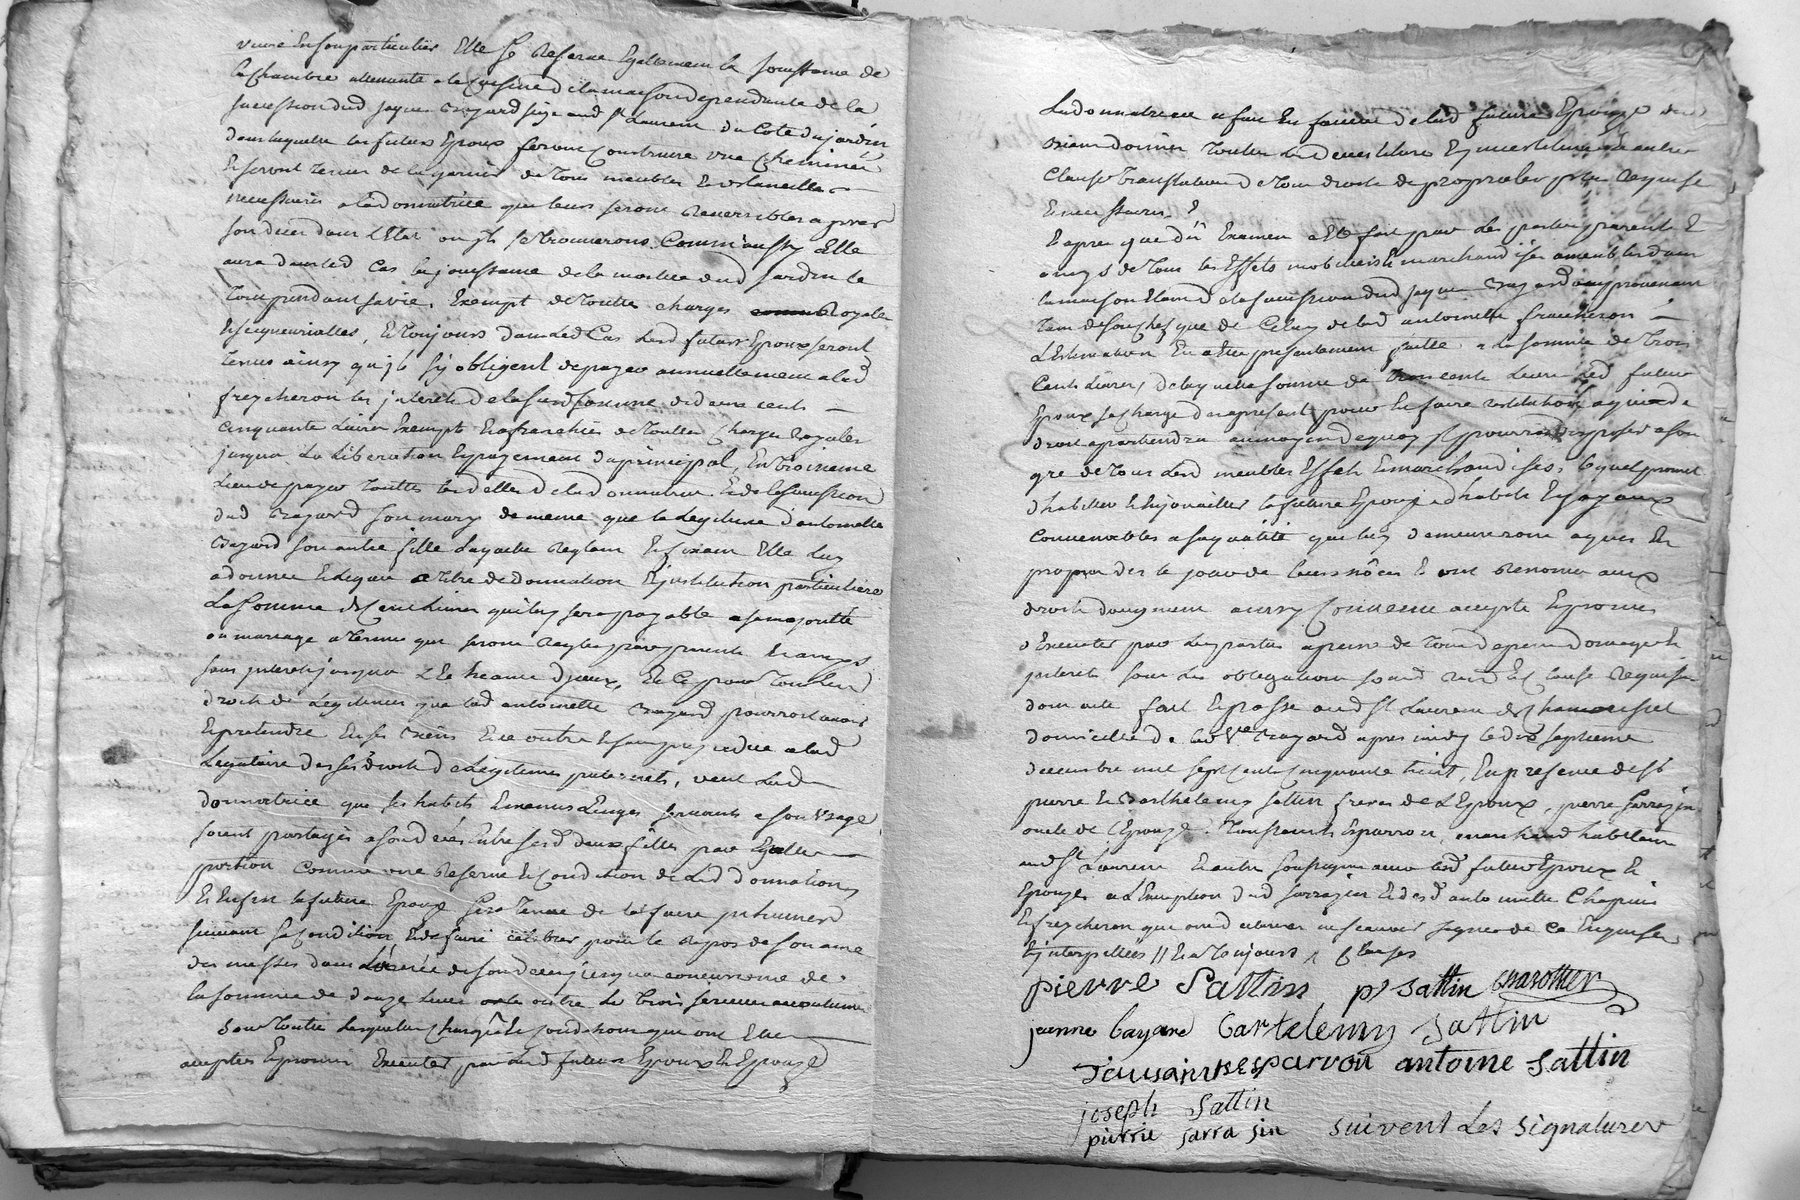 vivre En son particulier Elle se Reserve Egallement la jouissance de
la Chambre attenante a la Cuisine de la maison dependante de la
succession dud jaque Bayard size aud St Laurent du Cote du jardin
dans laquelle les futurs Epoux feront Construire une Cheminée
Et seront tenus de la garnir de tous meubles Et Ustancilles
necessaires a lad donnatrice qui leurs seront Reversibles apres
son deces dans L'Etat ou jls se trouverons. Comm'aussy Elle
aura dans led Cas la jouissance de la moitiee dud jardin le
tout pendant sa vie, Exempt de toutes charges Royalles
Et seigneurialles, Et toujours dans led Cas lesd futurs Epoux seront
tenus ainsy qu'jls s'y obligent de payer annuellement a lad
freycheron les jnterets de la susd somme de deux cents
cinquante Livres Exempt Et afranchies de toutes Charges Royales
jusqua La Liberation Et payement du principal, En troisieme
Lieu de payer toutes les dettes de lad donnatrice Et de la succession
dud Bayard son mary de meme que la Legitime d'antoinette
Bayard son autre fille a laquelle Reglant Et fixant Elle luy
a donnee Et Legue a titre de donnation Et jnstitution particuliere
La somme de Cent Livres qui luy sera payable a sa majorité
ou mariage a termes que seront Regles par parents Et amys
sans jnterets jusqua L'Echeance d'jceux, Et Ce pour tous les
droits de Legitimes que lad antoinette Bayard pourroit avoir
Et pretendre En ses Biens Et en outre Et sans prejudice a lad
Legataire de ses droits de Legitimes paternels, veut Lad
donnatrice que ses habits Et menus Linges servants a son Usage
soient partagés a son deces Entre sesd deux filles par Egalle
portion Comme une Reserve Et Condition de Lad donnation,
Et Enfin la future Epouse sera tenue de la faire jnhumer
suivant sa Condition, Et de faire celebrer pour le Repos de son ame
des messes dans L'année de son deces jusqua concurrence de
la somme de douze Livres
sous toutes Lesquelles Charges Et Conditions que ont Eté
acceptes Et promis Executer par Lesd futurs Epoux Et Epouse
Lad donnatrice a fait En faveur de lad future Epouse
toutes les devestiture Et jnvestiture Et autres
Clauses translatives de tous droits de proprietés pour ce requises
Et necessaires.
Et apres que dû Examen a Eté fait par les parties parents Et
amys de tous les Effets mobiliers Et marchandises
la maison Etant de la succession dud jaque Bayard
que de Celuy de lad antoinette freycheron
L'Estimation En a Ete presentement faitte a la somme de trois
Cents Livres, de laquelle somme de trois cents Livres led futur
Epoux se charge d'ors a present pour En faire restitution a qui de
droit apartiendra au moyen de quoy jl pourra disposer a son
gré de tous lesd meubles Effets Et marchandises, lequel promet
d'habiller Et Enjouailler la future Epouse d'habits Et joyaux
Convenables a sa qualité qui luy demeureront aquis En
propre des le jour de leurs nôces Et ont Renoncé aux
droits d'augment ainsy Convenu accepté Et promis
d'Executer par Les parties a peine de tous depens domages Et
jnterets sous Les obligations soumd Ren Et Clause Requises
dont acte fait Et passe aud St Laurent de Chamousset
domicille de lad Ve Bayard apres midy le dix septieme
decembre mil sept cents cinquante huit, En presence de Srs
pierre Et Barthelemy Sattin freres de L'Epoux, pierre sarrazin
oncle de L'Epouse, Toussaint Esparron, marchand habitant
aud St Laurent Et autres soussignes avec lesd futurs Epoux Et
Epouse a L'Exception dud sarrazin Et desd antoinette Chapuis
Et freycheron que ont declarees ne sçavoir signer de Ce Enquises
Et jnterpellées // Et a toujours clauses
pierre Sattin pr Sattin Charottier
janne bayard bartelemy Sattin
Tousaint esparron antoine Sattin
joseph Sattin
pierre sarra sin suivent Les signatures